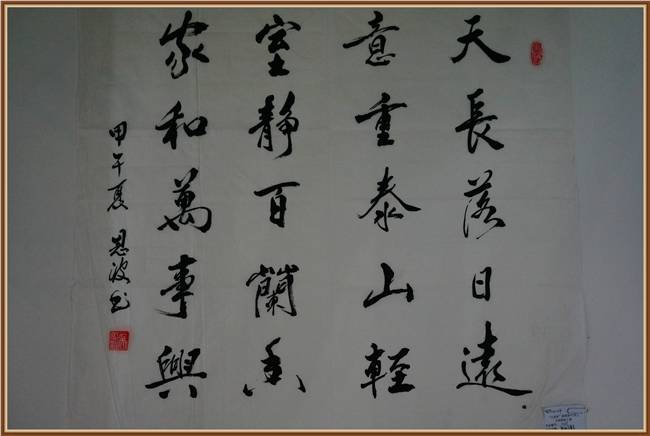 天長落日遠
意重泰山輕
室靜百蘭香
家和萬事興
甲午夏 思波书